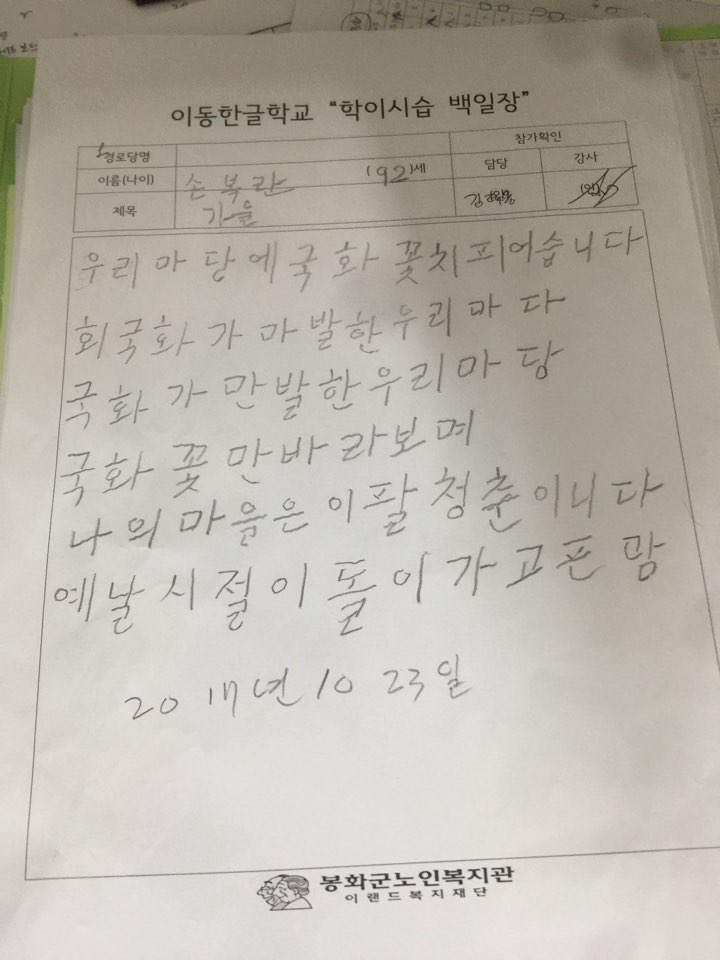 이동한글학교 “학이시습 백일장”
경로당명
참가확인
이름(나이)
손복란 (92)세
담당
강사
제목
가을
우리마당에국화꽃치피어습니다
회국화가마발한우리마다
국화가만발한우리마당
국화꽃만바라보며
나의마음은이팔청춘이니다
예날시절이돌이가고픈맘
년 10 23일
봉화군노인복지관
이랜드복지재단